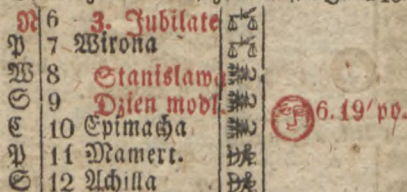 N 6 3. Jubilate
P 7 Wirona
W 8 Stanisława
S 9 Dzien modl. 6. 19' pp.
C 10 Epimacha
P 11 Mamert.
S 12 Achilla